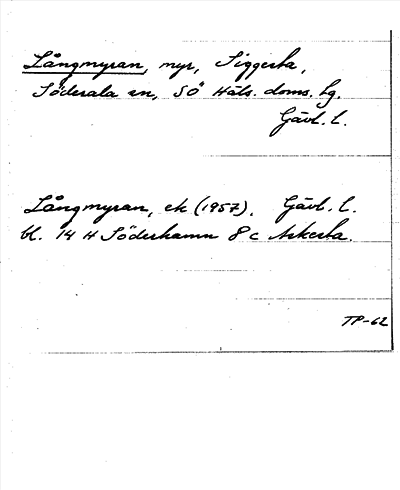 Långmyran, myr, Siggesta,
Söderala sn, SÖ Häls. doms. hg.
Gävl. l.
Långmyran, ek (1957). Gävl. l.
bl. 14 H Söderhamn 8 c Askesta.
TP-62